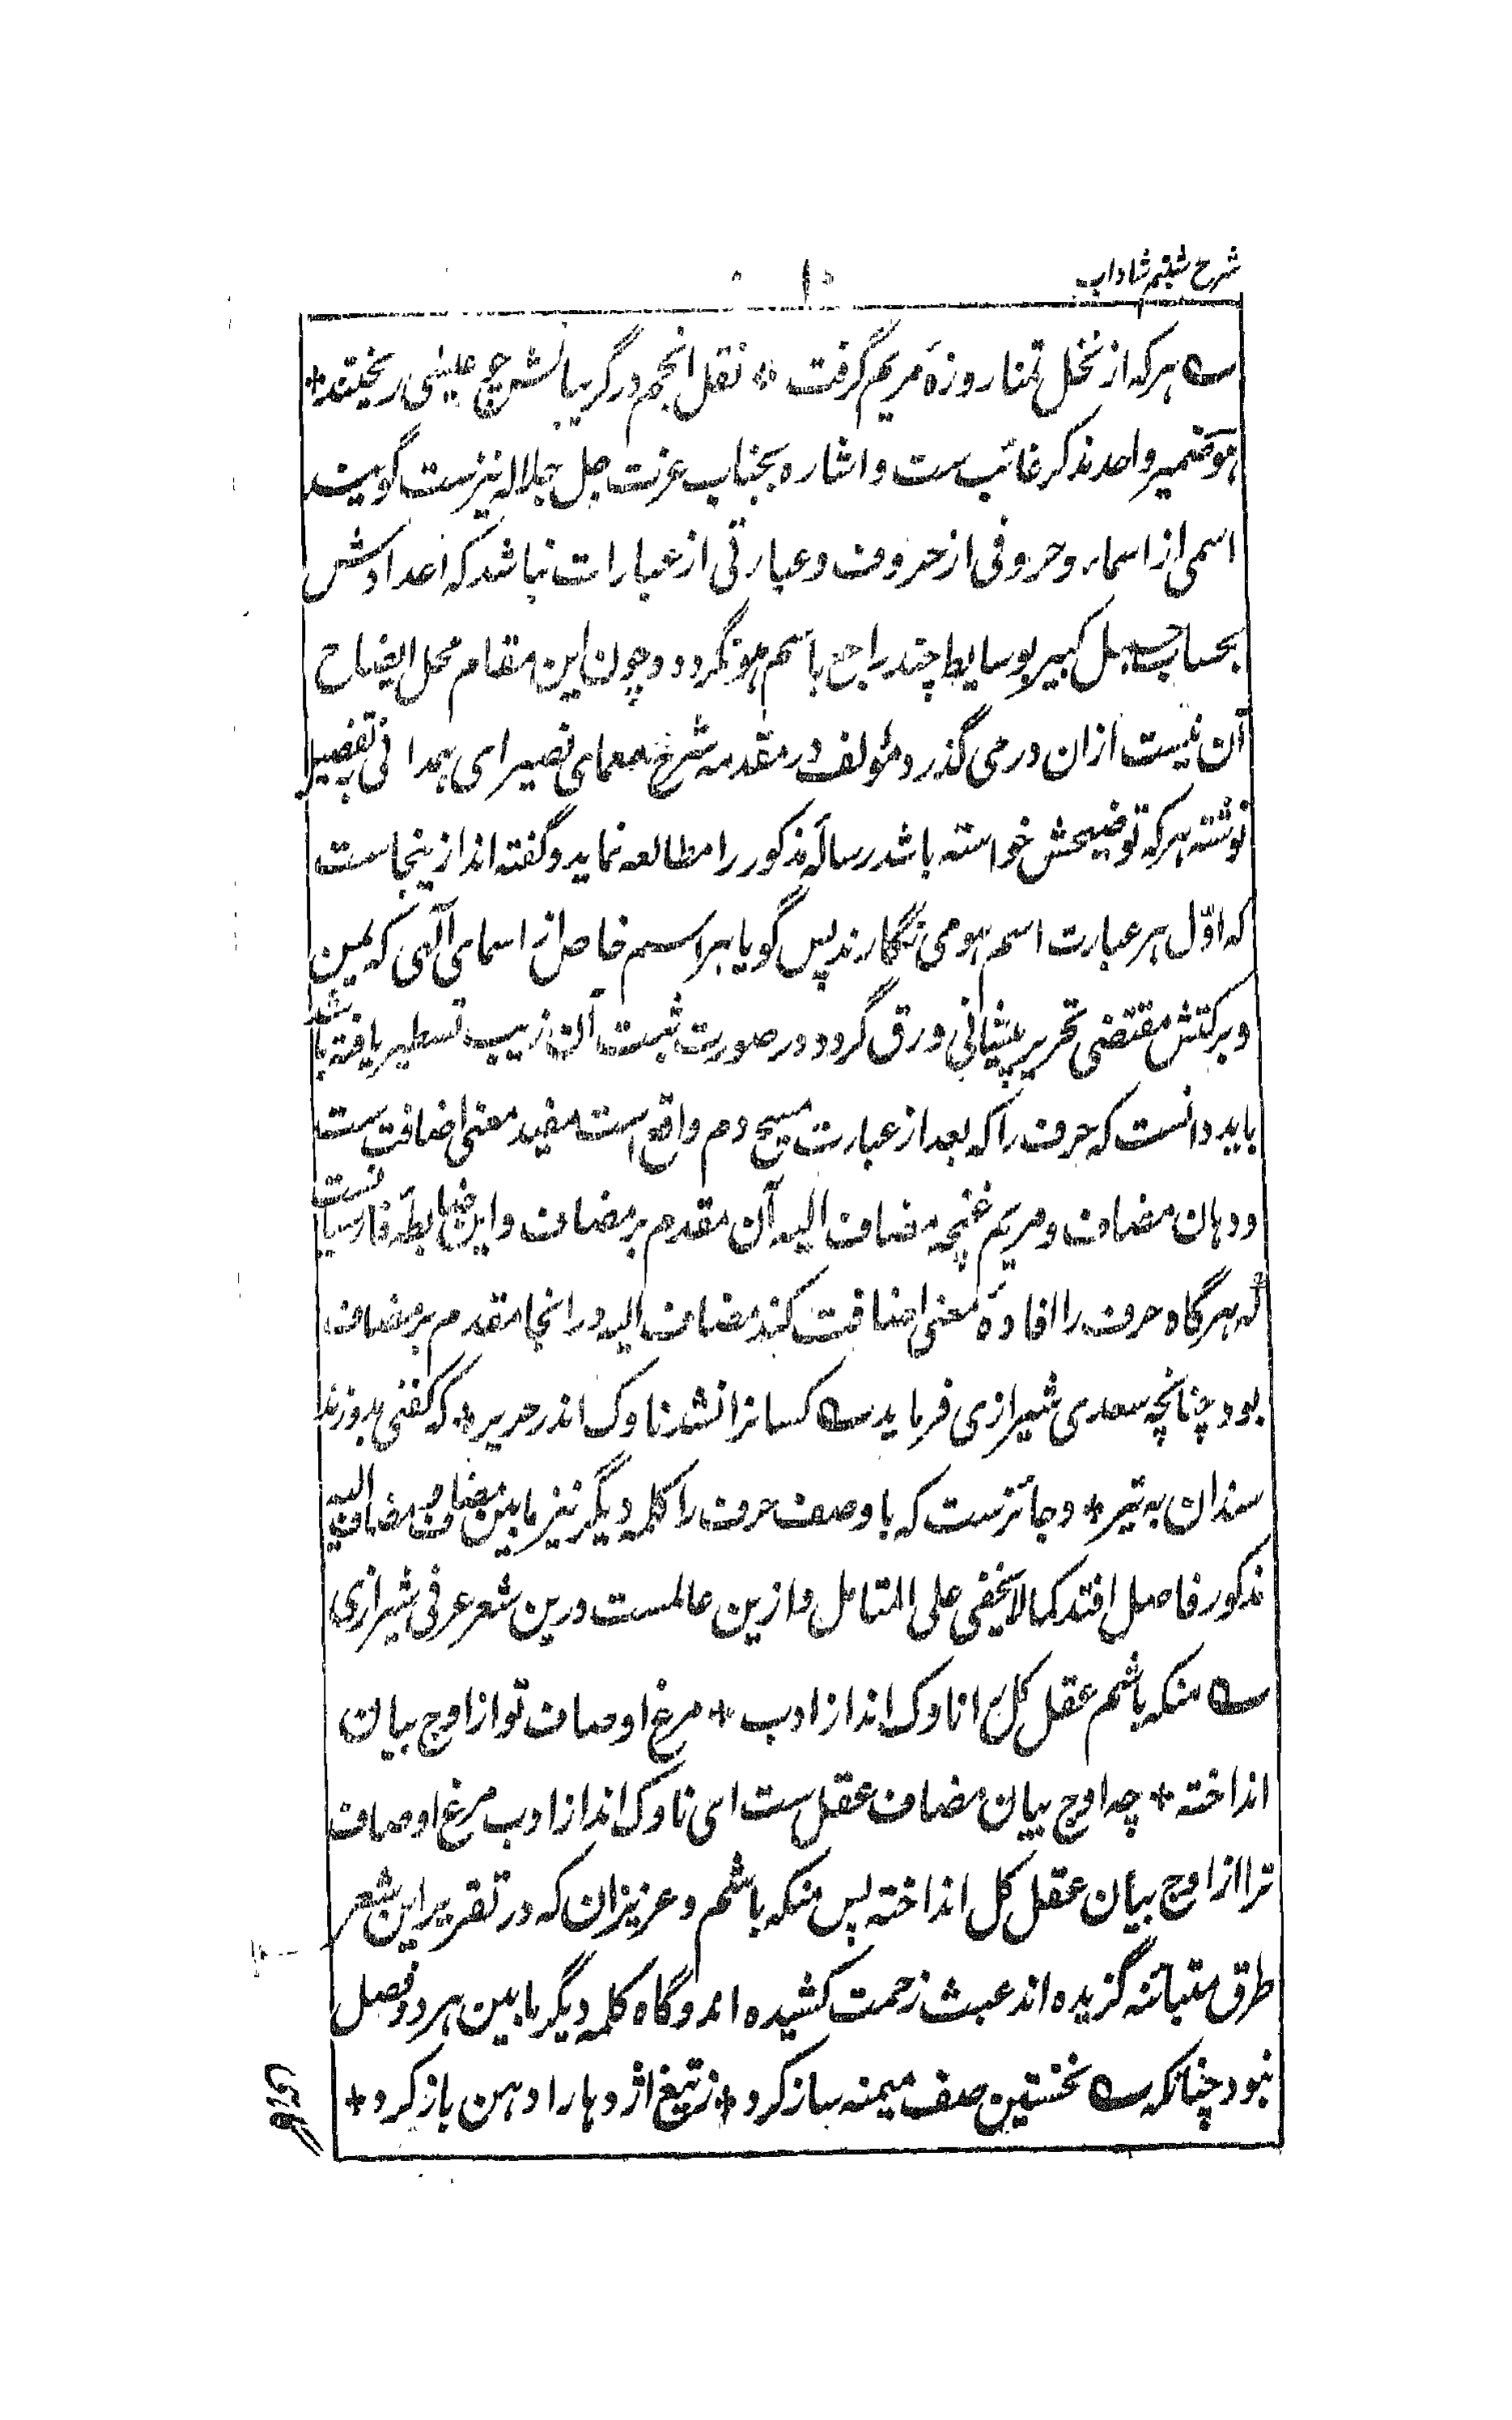 شرح شبنم شاداب
۱۰
ے هرکه از نخل تمنا روزهٔ مریم گرفت * نقل انجم در گریبانش چو عیسی ریختند *
هو ضمیر واحد مذکر غائب ست و اشاره بجناب عزت جل جلاله نیزست گویند
اسمی از اسماء و حروفی از حروف و عبارتی از عبارات نباشد که اعدادش
بحساب جمل کبیر بوسایط چند راجع باسم هو نگردد و چون این مقام محل ایضاح
آن نیست ازان درمی گذرد و مؤلف در مقدمه شرح معمای نصیرای همدانی بتفصیل
نوشته هرکه توضیحش خواسته باشد رسالهٔ مذکور را مطالعه نماید و گفته اند ازینجاست
که اوّل هر عبارت اسم هو می نگارند پس گویا هر اسم خاص از اسمای آلهی که یمن
و برکتش مقتضی تحریر پیشانی ورق گردد در صورت ثبت آن زیب تسطیر یافته باشد
باید دانست که حرف را که بعد از عبارت مسیح دم واقع است مفید معنی اضافت ست
و دهان مضاف و مریم غنچه مضاف الیه آن مقدم بر مضاف و این ضابطهٔ فارسیانست
که هرگاه حرف را افادهٔ معنی اضافت کند مضاف الیه در انجا مقدم بر مضاف
بود چنانچه سعدی شیرازی فرماید ے کسانرا نشد ناوک اندر حریر * که گفتی بدوزند
سندان به تیر * و جائزست که با وصف حرف را کلمه دیگر نیز مابین مضاف و مضاف الیه
مذکور فاصل افتد کما لا یخفی علی المتامل و ازین عالمست درین شعر عرفی شیرازی
ے منکه باشم عقل کل را ناوک انداز ادب * مرغ اوصاف تو از اوج بیان
انداخته * چه اوج بیان مضاف عقل ست ای ناوک انداز ادب مرغ اوصاف
ترا از اوج بیان عقل کل انداخته پس منکه باشم و عزیزان که در تقریر این شعر
طرق متبائنه گزیده اند عبث زحمت کشیده اند و گاه کلمه دیگر مابین هر دو فصل
نبود چنانکه ے نخستین صف میمنه ساز کرد * ز تیغ اژدها را دهن باز کرد *